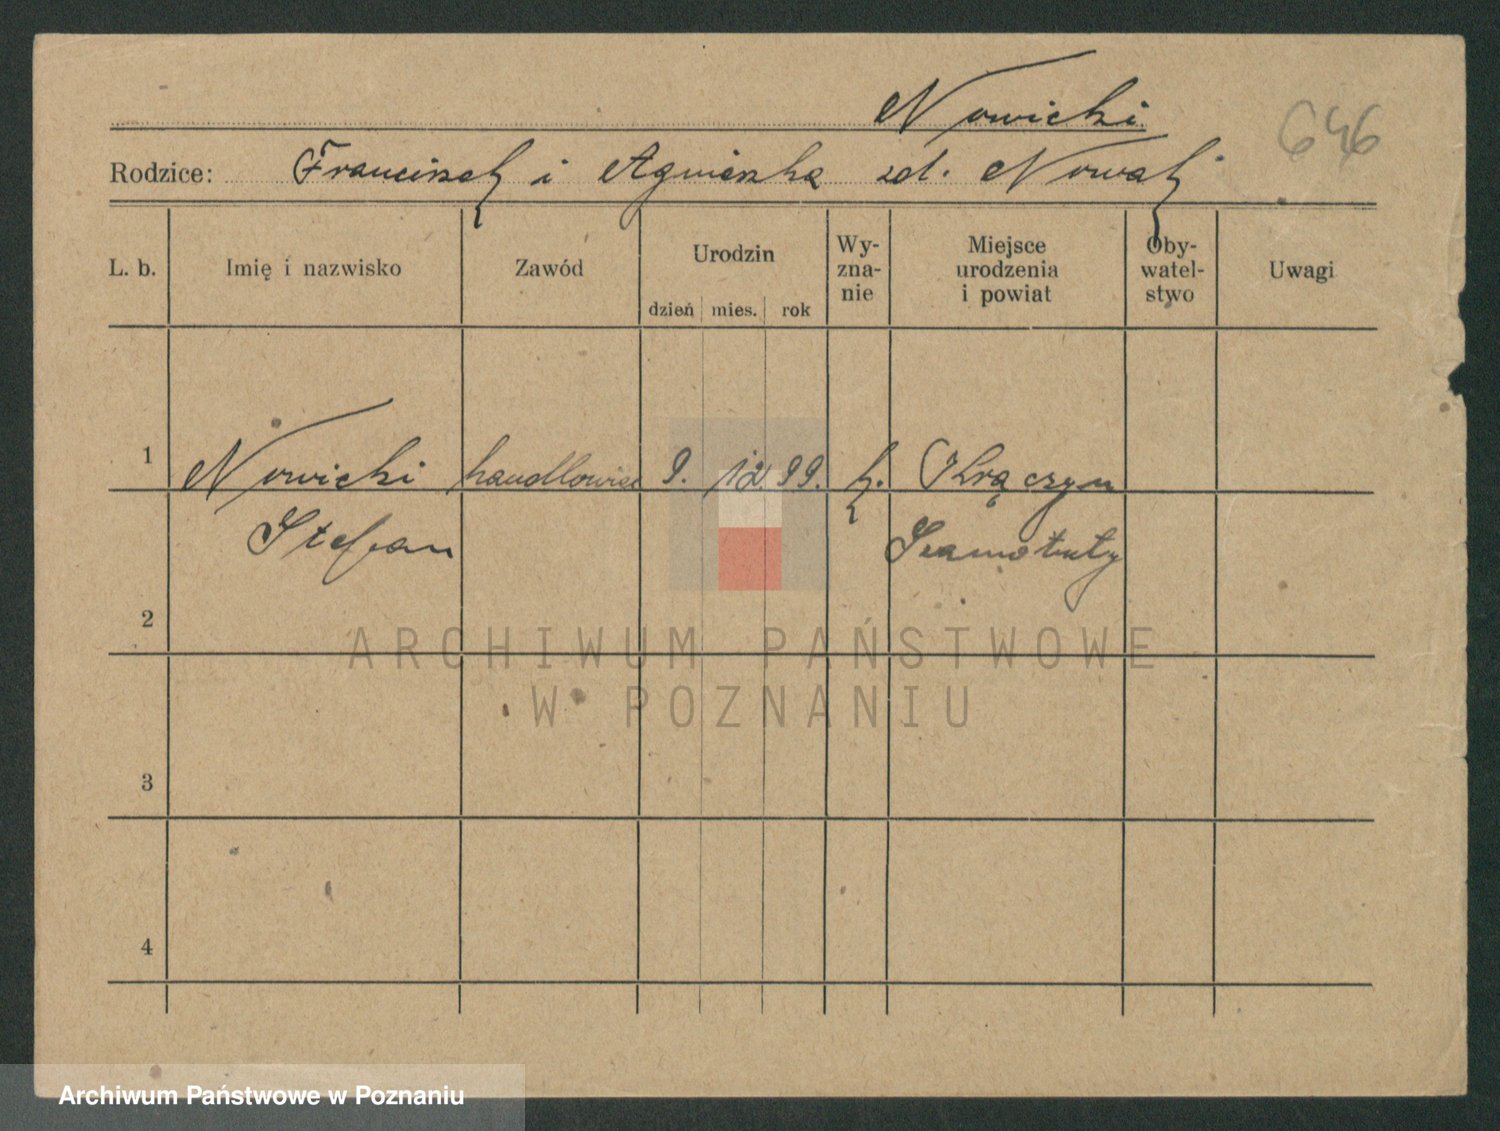 Nowicki
646
Rodzice: Franciszek i Agnieszka zd. Nowak
L. b. Imię i nazwisko Zawód Urodzin Wy-zna-nie Miejsce urodzenia i powiat Oby-watel-stwo Uwagi
dzień mies. rok
1 Nowicki handlowiec 9. 12. 99. k.
Stefan Szamotuły
2
ARCHIWUM PAŃSTWOWE
W POZNANIU
3
4
Archiwum Państwowe w Poznaniu